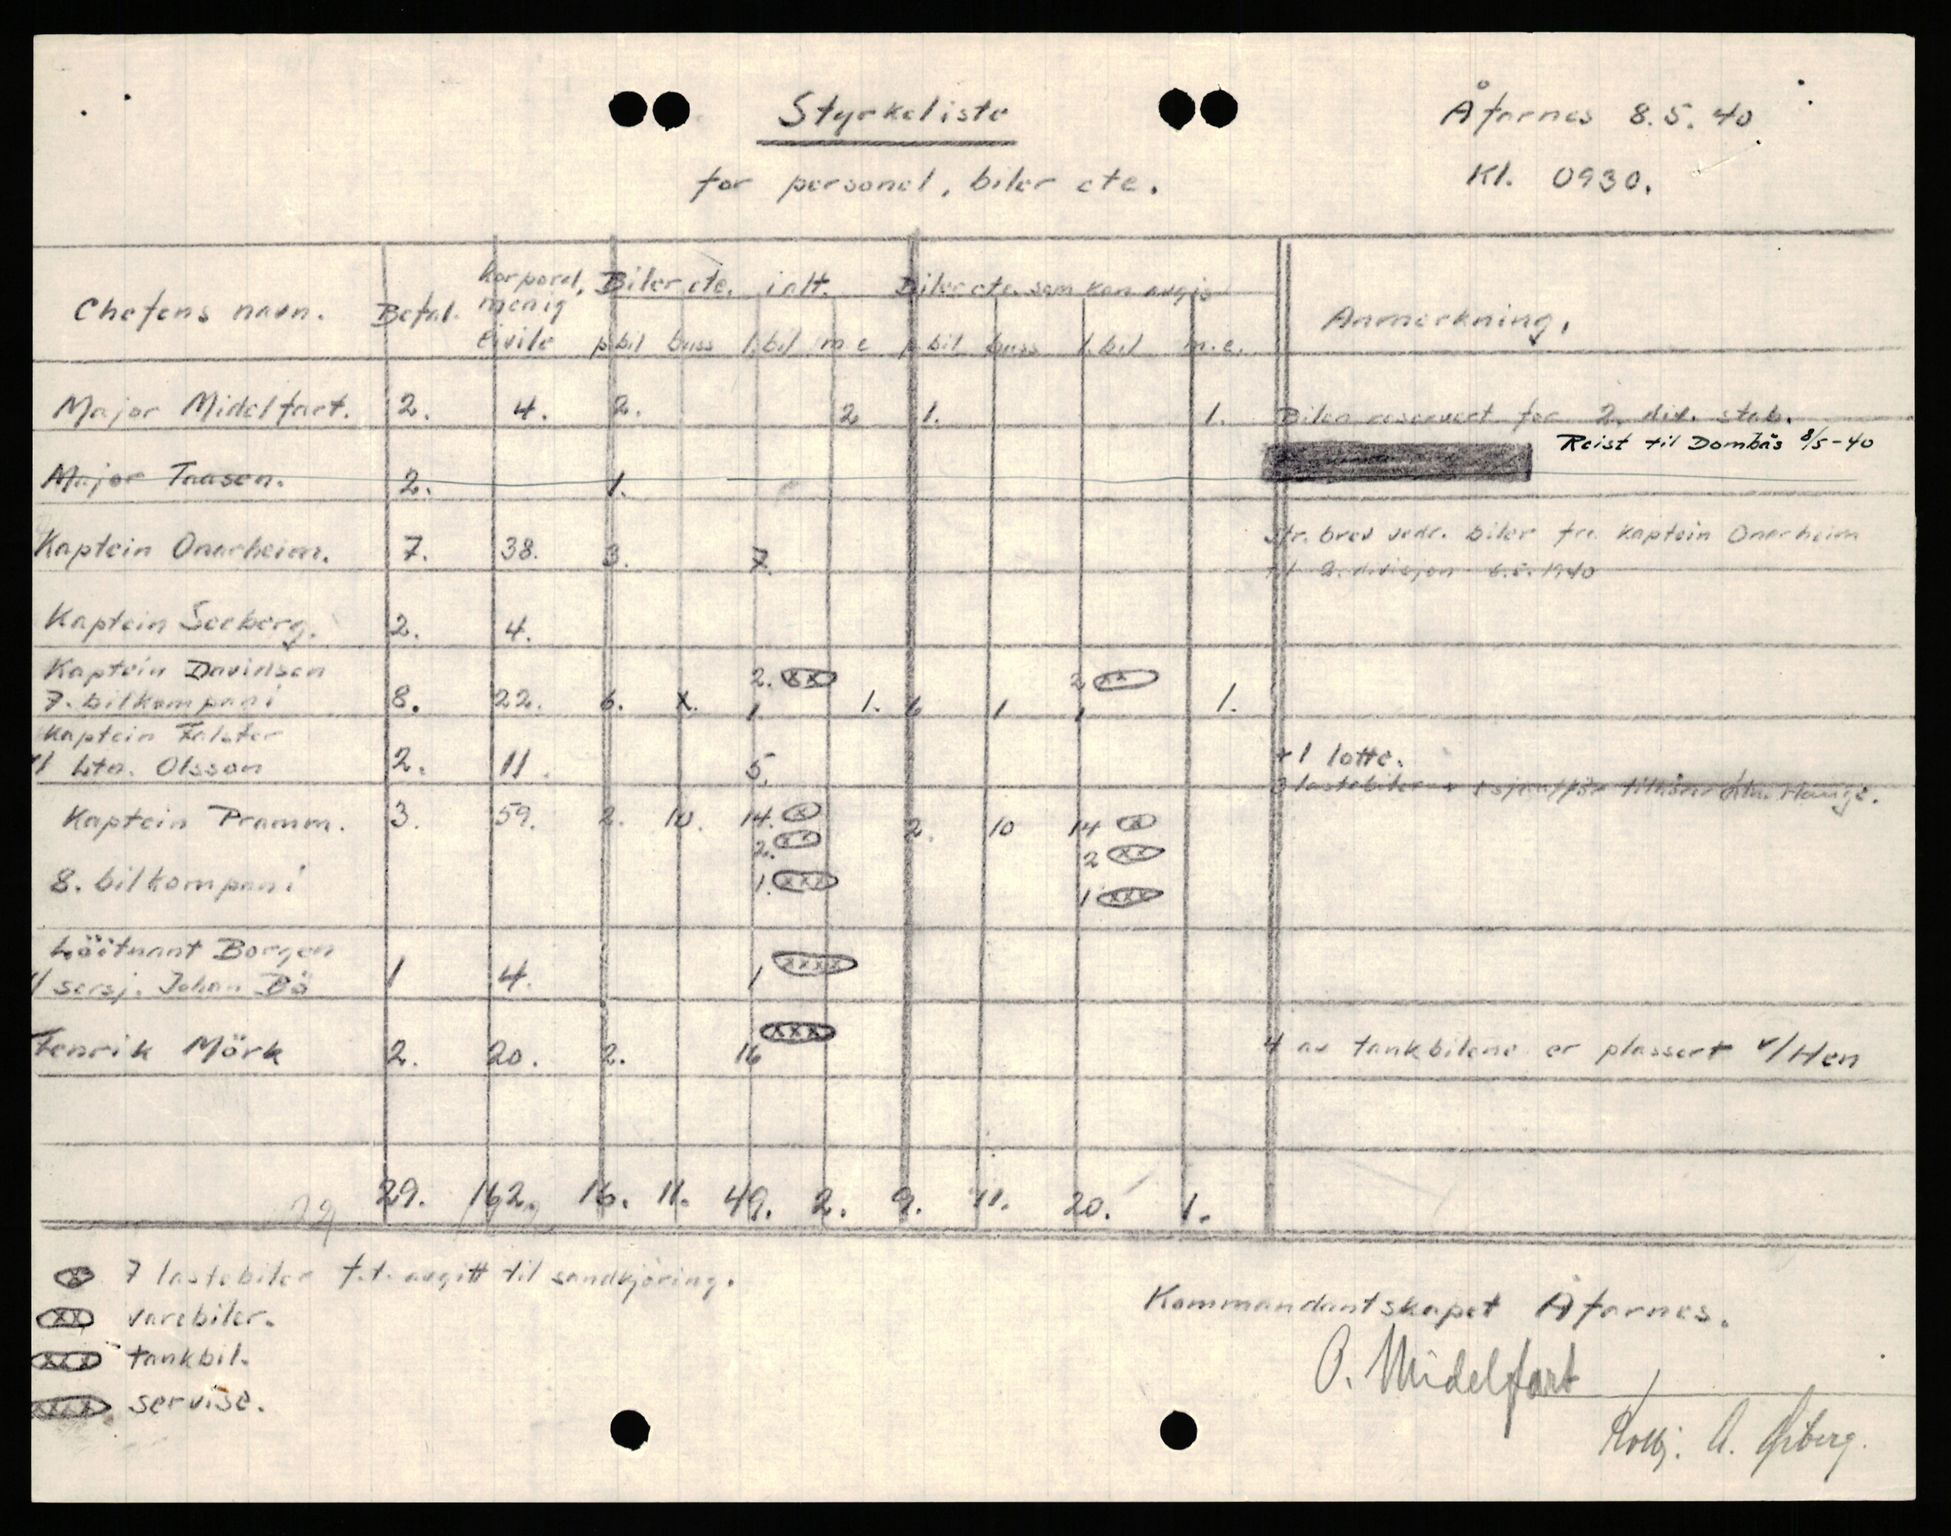 Styrkeliste
Åfarnes 8.5.40
for personel, biler etc.
Kl. 0930.
Chefens navn. Befal. Korporal, menig Civile Biler etc. ialt. Biler etc. som kan avgis Anmerkning.
p.bil buss l.bil m c p.bil buss l.bil m.c.
Major Midelfart. 2. 4. 2. 2 1. 1. Bilen reservert for 2. div. stab.
Reist til Dombås 8/5-40
Major Taasen. 2. 1.
Kaptein Onarheim. 7. 38. 3. 7. Str. brev vedr. biler fra Kaptein Onarheim
til 2. divisjon 6.5.1940
Kaptein Seeberg. 2. 4.
Kaptein Davidsen 2. xx 2 xx
7. bilkompani 8. 22. 6. 1. 1. 1. 6 1 1 1.
Kaptein Falster
v/ Ltn. Olsson 2. 11. 5. +1 lotte.
3 lastebiler + 1 sjauffør
Kaptein Pramm. 3. 59. 2. 10. 14. x 2. 10 14 x
2. xx 2 xx
8. bilkompani 1. xxx 1 xxx
Löitnant Borgen
v/ sersj. Johan Bö 1 4. 1 xxxx
Fenrik Mörk 2. 20. 2. 16 xxx 4 av tankbilene er plassert v/Hen
29. 162. 16. 11. 49. 2. 9. 11. 20. 1.
x 7 lastebiler f.t. avgitt til sandkjöring.
xx varebiler.
xxx tankbil.
xxxx servise.
Kommandantskapet Åfarnes.
O. Midelfart
Kolbj. A.